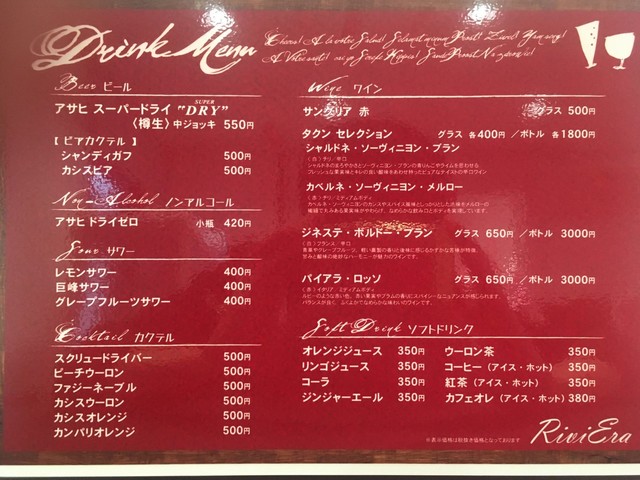 Drink Menu
Beer ビール
アサヒ スーパードライ "SUPER DRY"
〈樽生〉中ジョッキ 550円
【 ビアカクテル 】
シャンディガフ 500円
カシスビア 500円
Non-Alcohol ノンアルコール
アサヒ ドライゼロ 小瓶 420円
Sour サワー
レモンサワー 400円
巨峰サワー 400円
グレープフルーツサワー 400円
Cocktail カクテル
スクリュードライバー 500円
ピーチウーロン 500円
ファジーネーブル 500円
カシスウーロン 500円
カシスオレンジ 500円
カンパリオレンジ 500円
Wine ワイン
サングリア 赤 グラス 500円
タクン セレクション グラス 各400円 /ボトル 各1800円
シャルドネ・ソーヴィニヨン・ブラン
(白) チリ/辛口
カベルネ・ソーヴィニヨン・メルロー
(赤) チリ/ミディアムボディ
ジネステ・ボルドー・ブラン グラス 650円 /ボトル 3000円
(白) フランス/辛口
パイアラ・ロッソ グラス 650円 /ボトル 3000円
(赤) イタリア/ミディアムボディ
Soft Drink ソフトドリンク
オレンジジュース 350円
リンゴジュース 350円
コーラ 350円
ジンジャーエール 350円
ウーロン茶 350円
コーヒー (アイス・ホット) 350円
紅茶 (アイス・ホット) 350円
カフェオレ (アイス・ホット) 380円
※表示価格は税抜き価格となっております
RiviEra